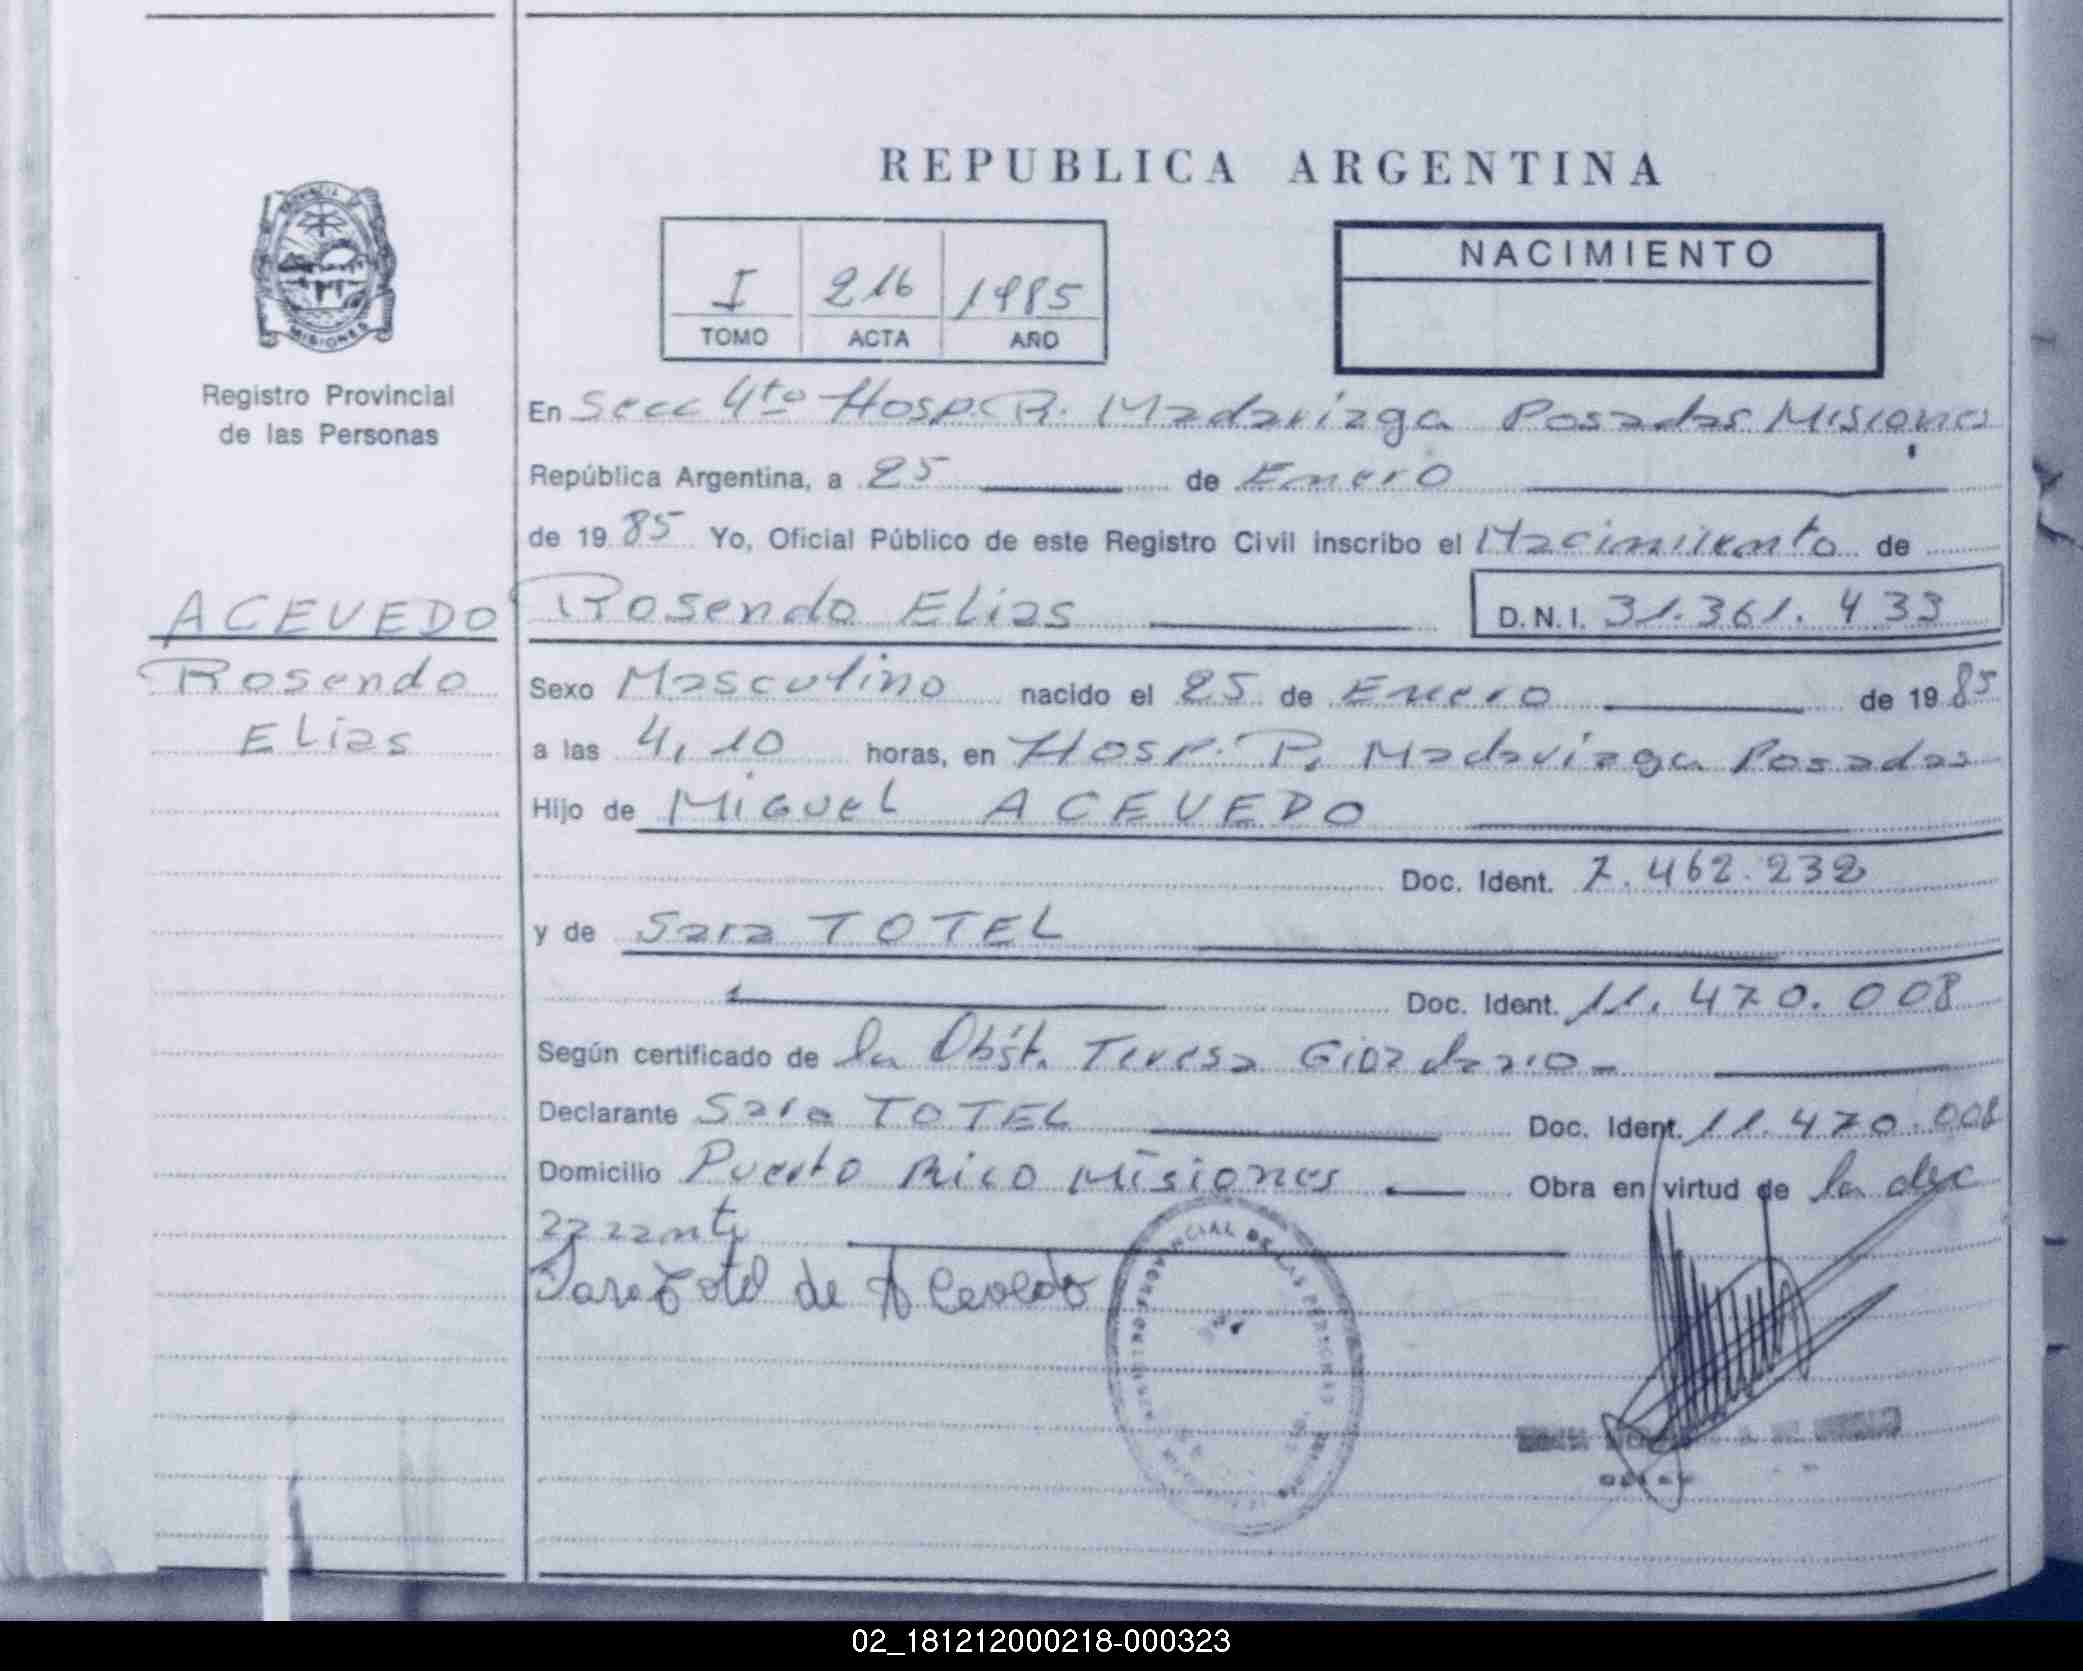 REPUBLICA ARGENTINA
PROVINCIA DE
MISIONES
Registro Provincial
de las Personas
I 216 1985
TOMO ACTA AÑO
NACIMIENTO
En Secc 4to Hosp. R. Madariaga Posadas Misiones
República Argentina, a 25 de Enero
de 19 85 Yo, Oficial Público de este Registro Civil inscribo el Nacimiento de
ACEVEDO
Rosendo
Elias
Rosendo Elias D.N.I. 31.361.433
Sexo Masculino nacido el 25 de Enero de 19 85
a las 4,10 horas, en Hosp. R. Madariaga Posadas
Hijo de Miguel ACEVEDO
Doc. Ident. 7.462.232
y de Sara TOTEL
Doc. Ident. 11.470.008
Según certificado de la Obst. Teresa Giordano
Declarante Sara TOTEL Doc. Ident. 11.470.008
Domicilio Puerto Rico Misiones Obra en virtud de la dec
Sara Totel de Acevedo
PROVINCIAL DE LAS PERSONAS
02_181212000218-000323